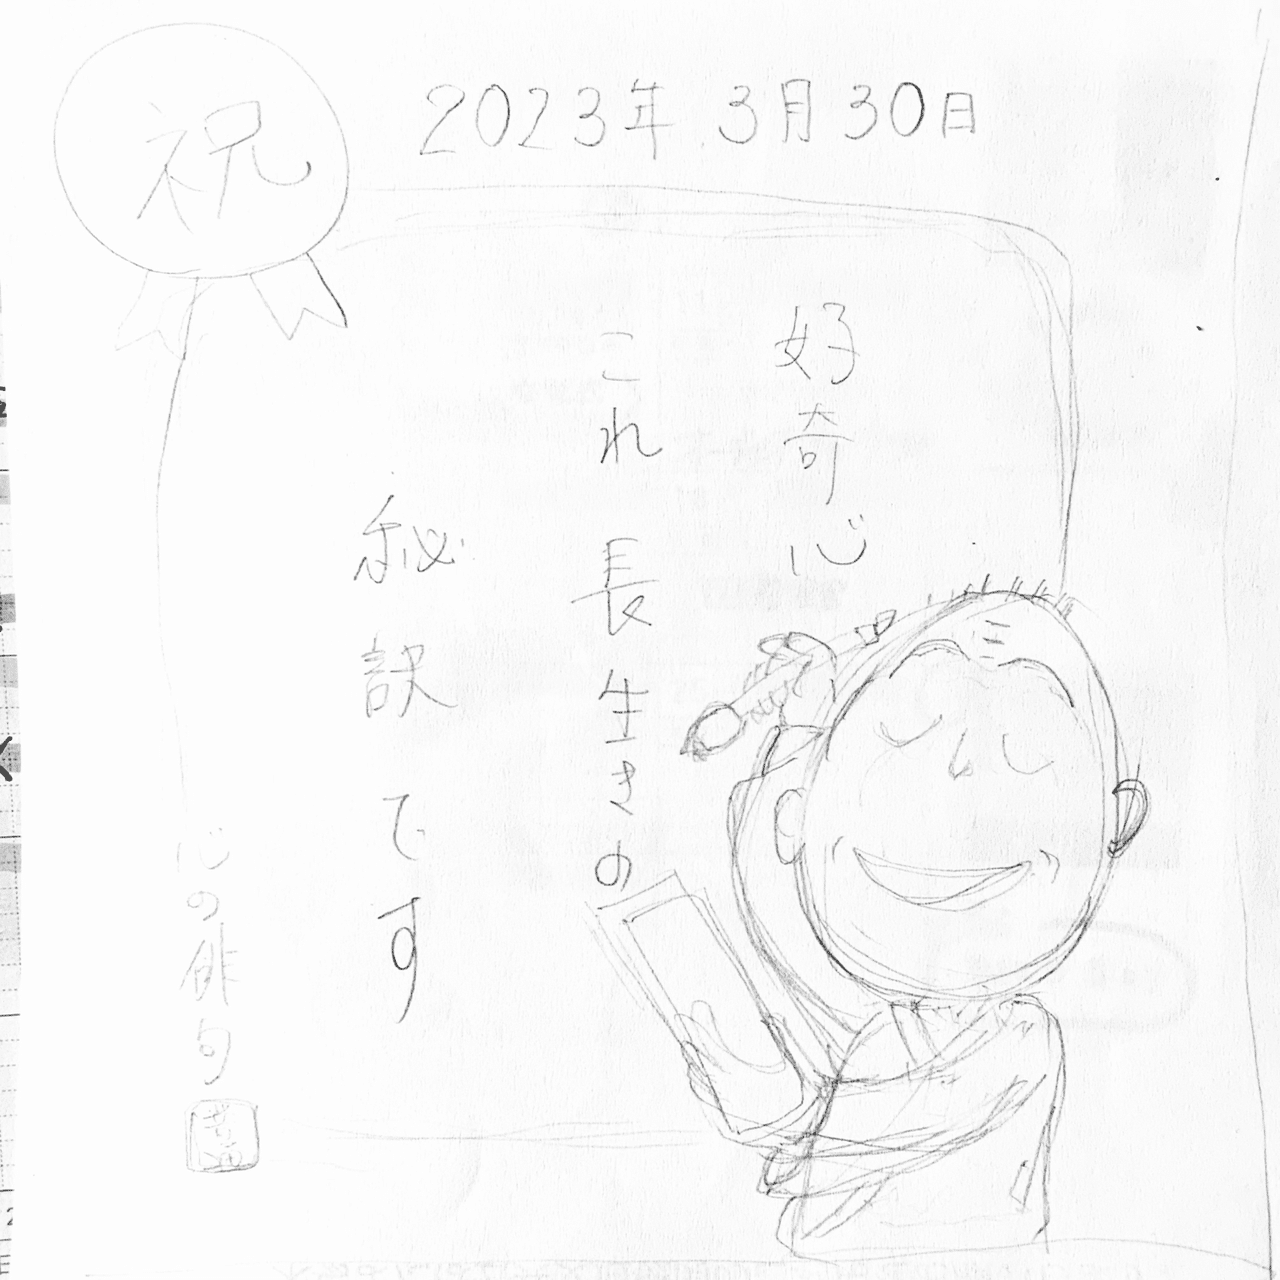 祝
2023年 3月30日
好奇心
これ 長生きの
秘訣です
心の俳句